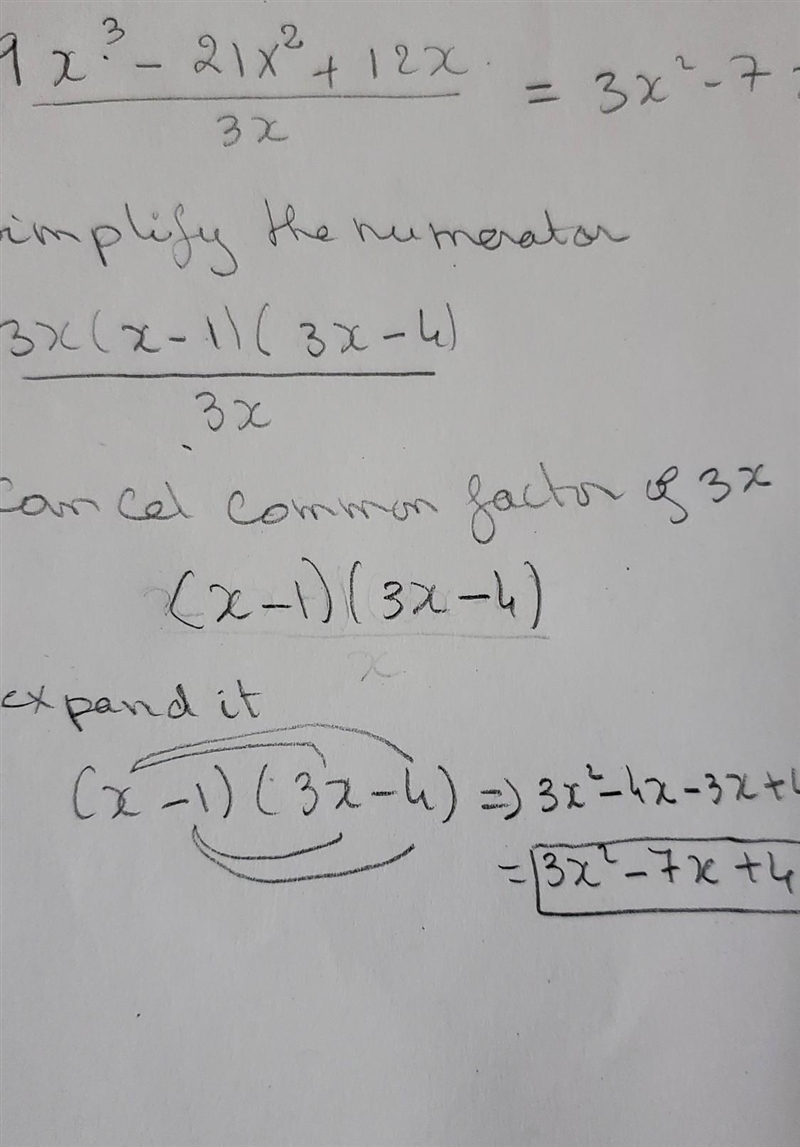 9x³ - 21x² + 12x / 3x = 3x² - 7
implify the numerator
3x(x-1)(3x-4) / 3x
Cancel common factor of 3x
(x-1)(3x-4)
x
expand it
(x-1)(3x-4) => 3x²-4x-3x+4
= 3x²-7x+4